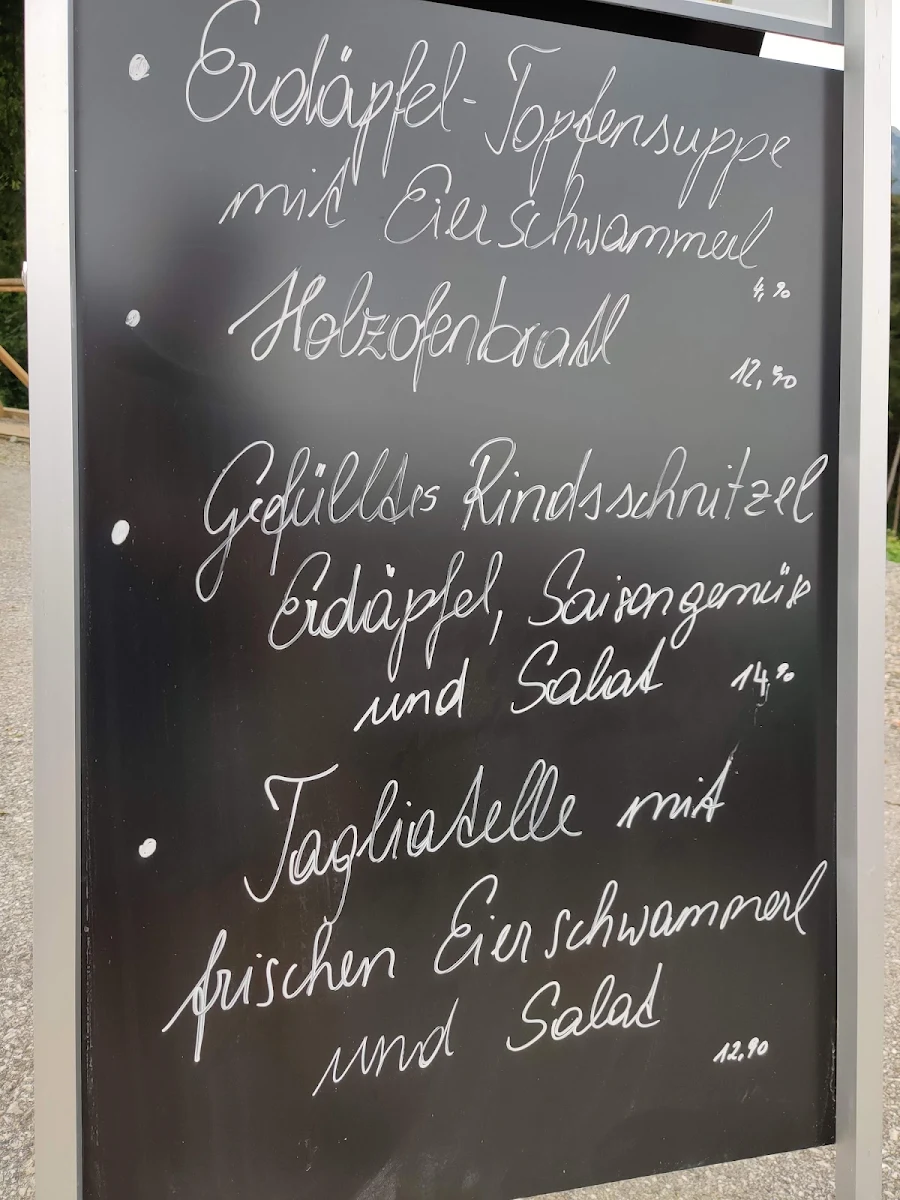 • Erdäpfel-Topfensuppe
mit Eierschwammerl
4,90
• Holzofenbratl
12,90
• Gefülltes Rindsschnitzel
Erdäpfel, Saisongemüse
und Salat 14,90
• Tagliatelle mit
frischen Eierschwammerl
und Salat
12,90